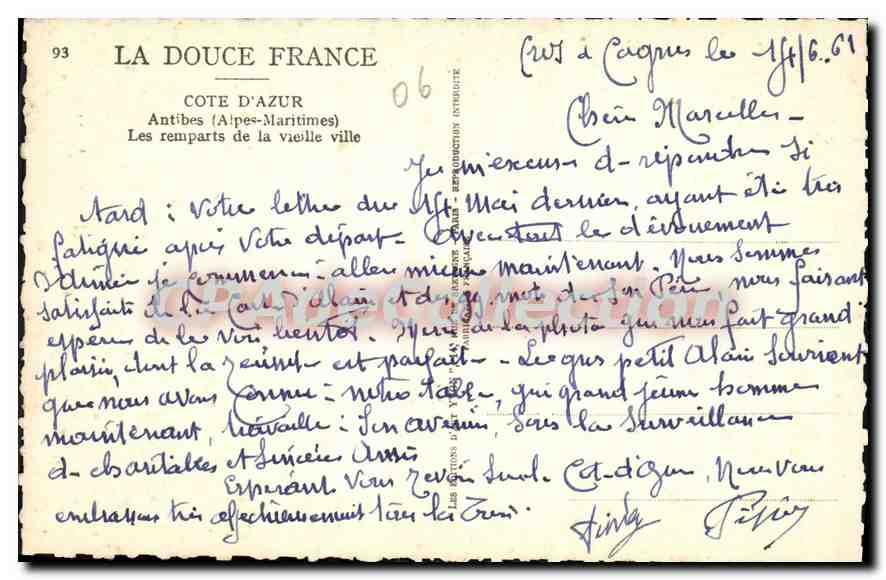 93
LA DOUCE FRANCE
COTE D'AZUR
Antibes (Alpes-Maritimes)
Les remparts de la vieille ville
06
LES EDITIONS D'ART YVON PARIS - REPRODUCTION INTERDITE
FABRICATION FRANÇAISE
de Cagnes le 6.61
Chère Marcelle -
Je m'excuse de répondre si
tard : votre lettre du Mai dernier, ayant été très
fatigué après votre départ - avec tout le dévouement
je commence aller mieux maintenant. Nous sommes
satisfaits de la carte d'Alain et des mots de son Père, nous faisant
espérer de le voir bientôt. Merci de la photo qui nous fait grand
plaisir, dont la réussite est parfaite - Le gros petit Alain souriant
que nous avons connu notre qui grand jeune homme
maintenant, travaille : Son avenir, sous la surveillance
de charitables et sincères Amis
Espérant vous revoir nous vous
embrassons très affectueusement tous les Trois.